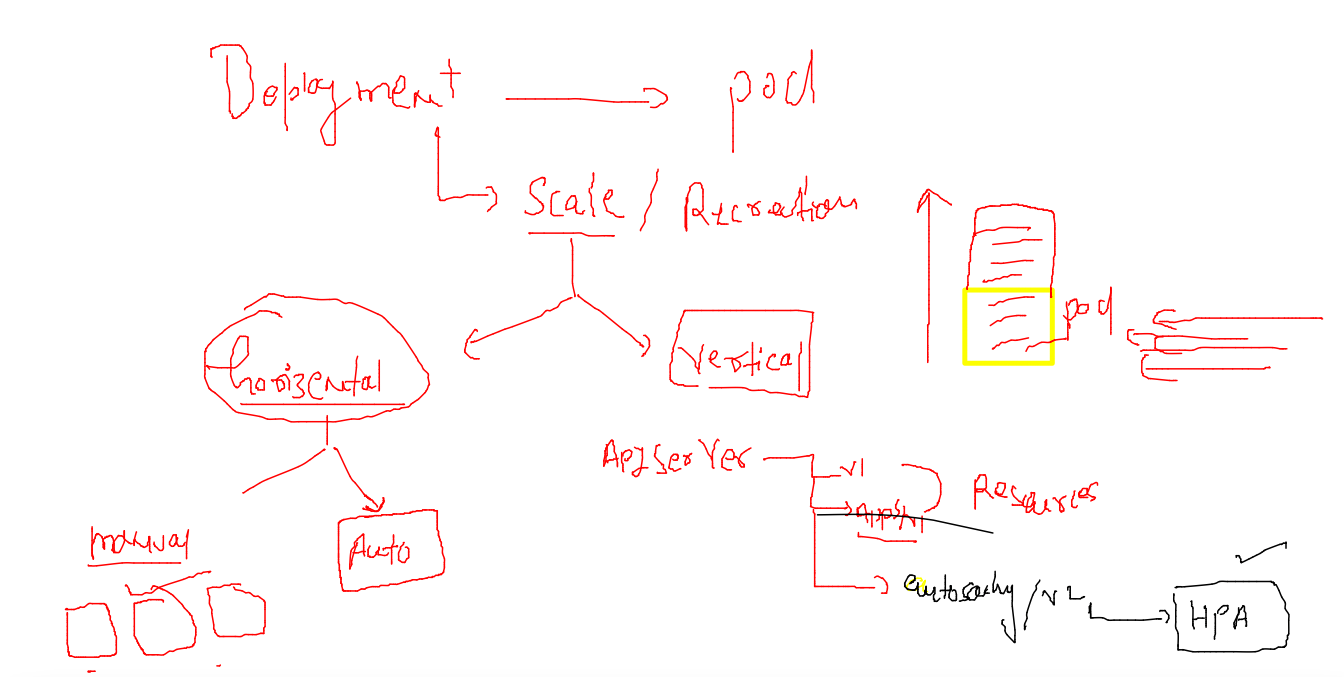 Deployment → pod
Scale / Recreation
horizental
vertical
pod
manual
Auto
Apiserver
v1
apps/v1
Resources
autoscaling/v2
HPA